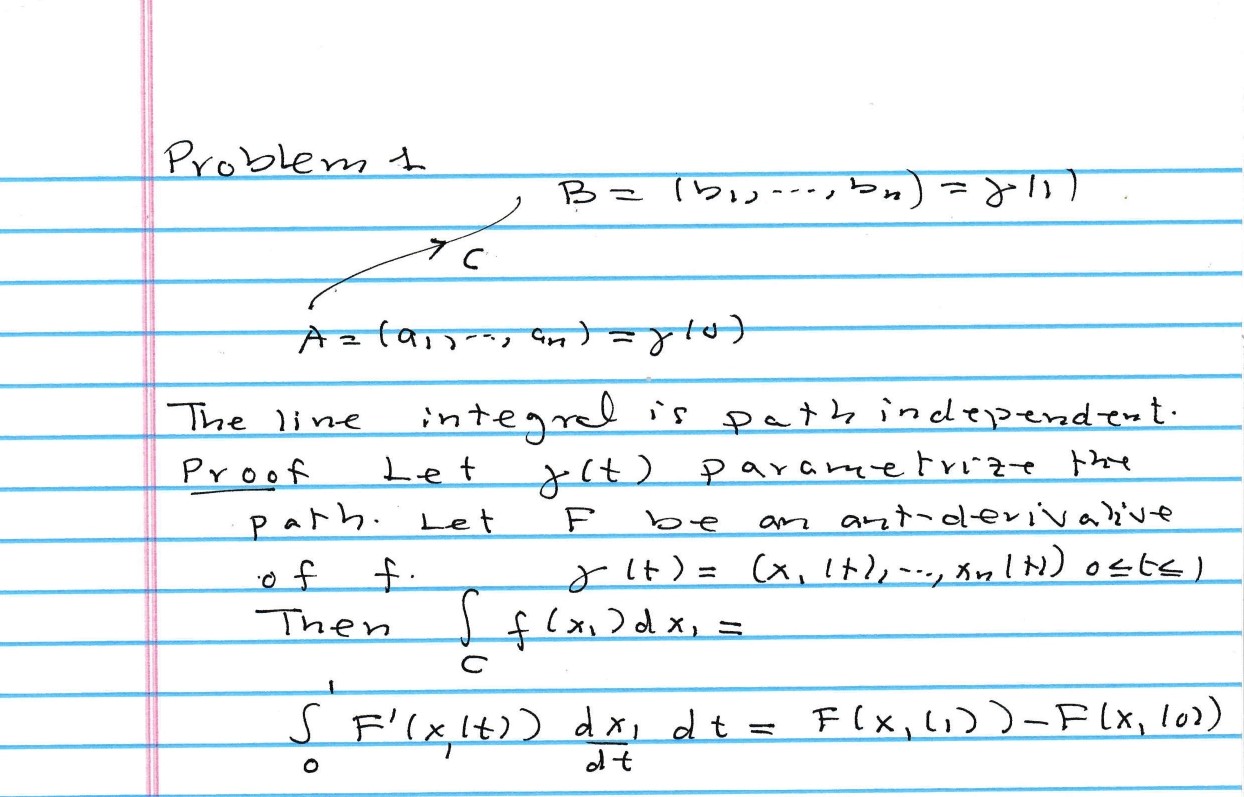 Problem 1
B = (b₁, ---, bₙ) = γ(1)
C
A = (a₁, ---, aₙ) = γ(0)
The line integral is path independent.
Proof Let γ(t) parametrize the
path. Let F be an anti-derivative
of f. γ(t) = (x₁(t), ---, xₙ(t)) 0≤t≤1
Then ∫_C f(x₁)dx₁ =
∫₀¹ F'(x₁(t)) dx₁/dt dt = F(x₁(1)) - F(x₁(0))